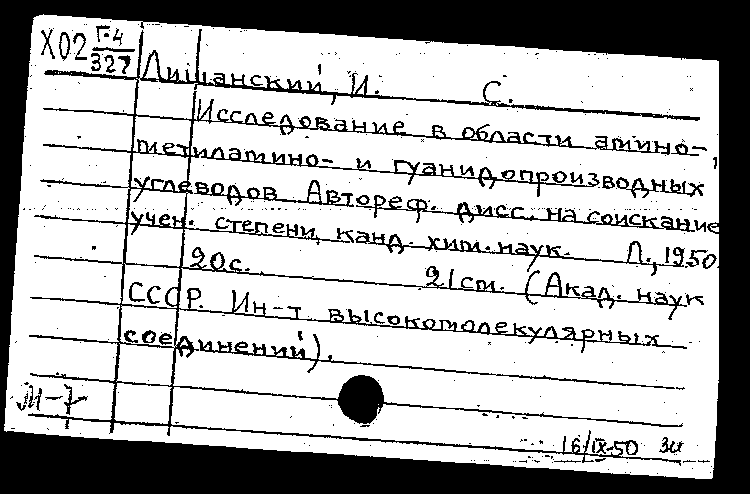 X02 Г-4
327
Лишанский, И. С.
Исследование в области амино-,
метиламино- и гуанидопроизводных
углеводов. Автореф. дисс. на соискание
учен. степени канд. хим. наук. Л., 1950.
20с. 21см. (Акад. наук
СССР. Ин-т высокомолекулярных
соединений).
М-7
16/IX-50 Зи